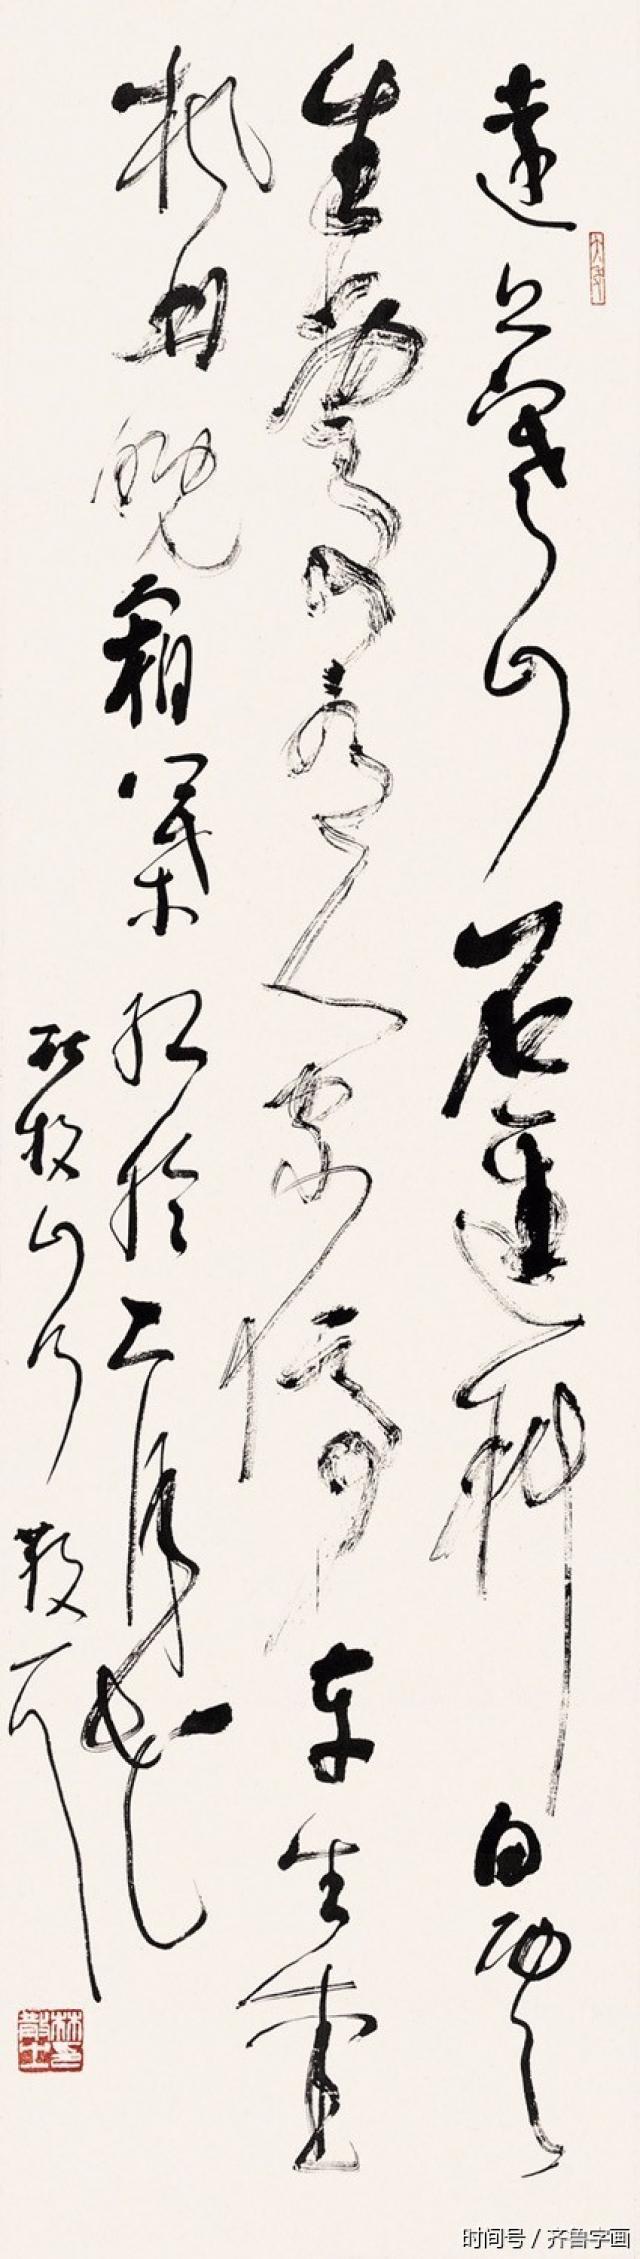 远上寒山石迳斜白云
生处有人家停车坐爱
枫林晚霜叶红于二月花
杜牧山行散之
时间号 / 齐鲁字画